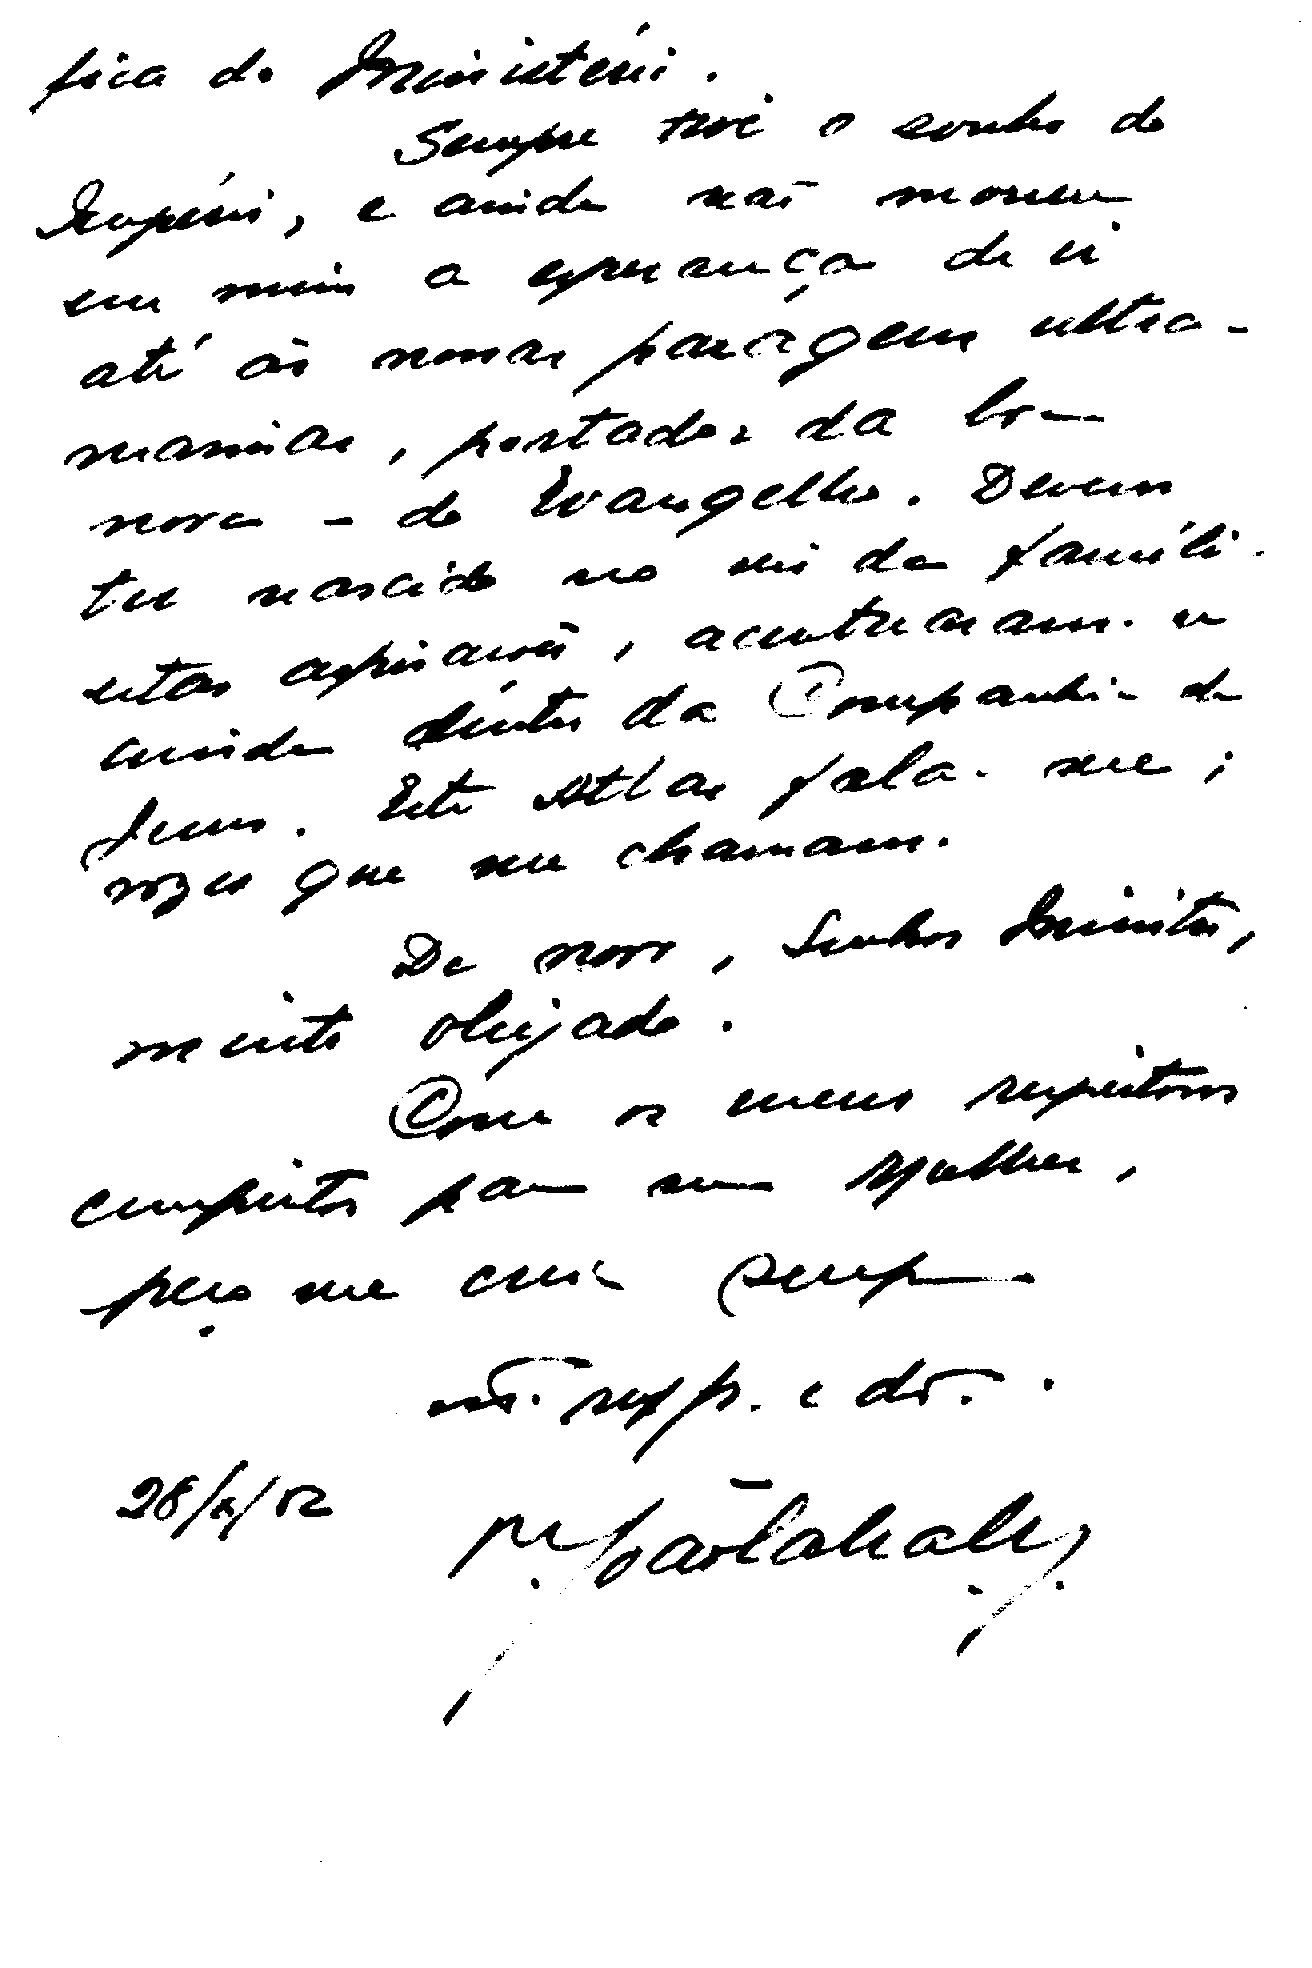 fica do Ministério.
Sempre tive o sonho do
Império, e ainda não morreu
em mim a esperança de ir
até às nossas paragens ultra-
marinas, portador da boa
nova – do Evangelho. Devem
ter nascido no seio da família
estas aspirações, acentuaram-se
ainda dentro da Companhia de
Jesus. Este Atlas fala-me;
vozes que me chamam.
De novo, Senhor Ministro,
muito obrigado.
Com os meus respeitosos
cumprimentos para sua Mulher,
peço me creia sempre
mt. resp. e dº.
28/X/52